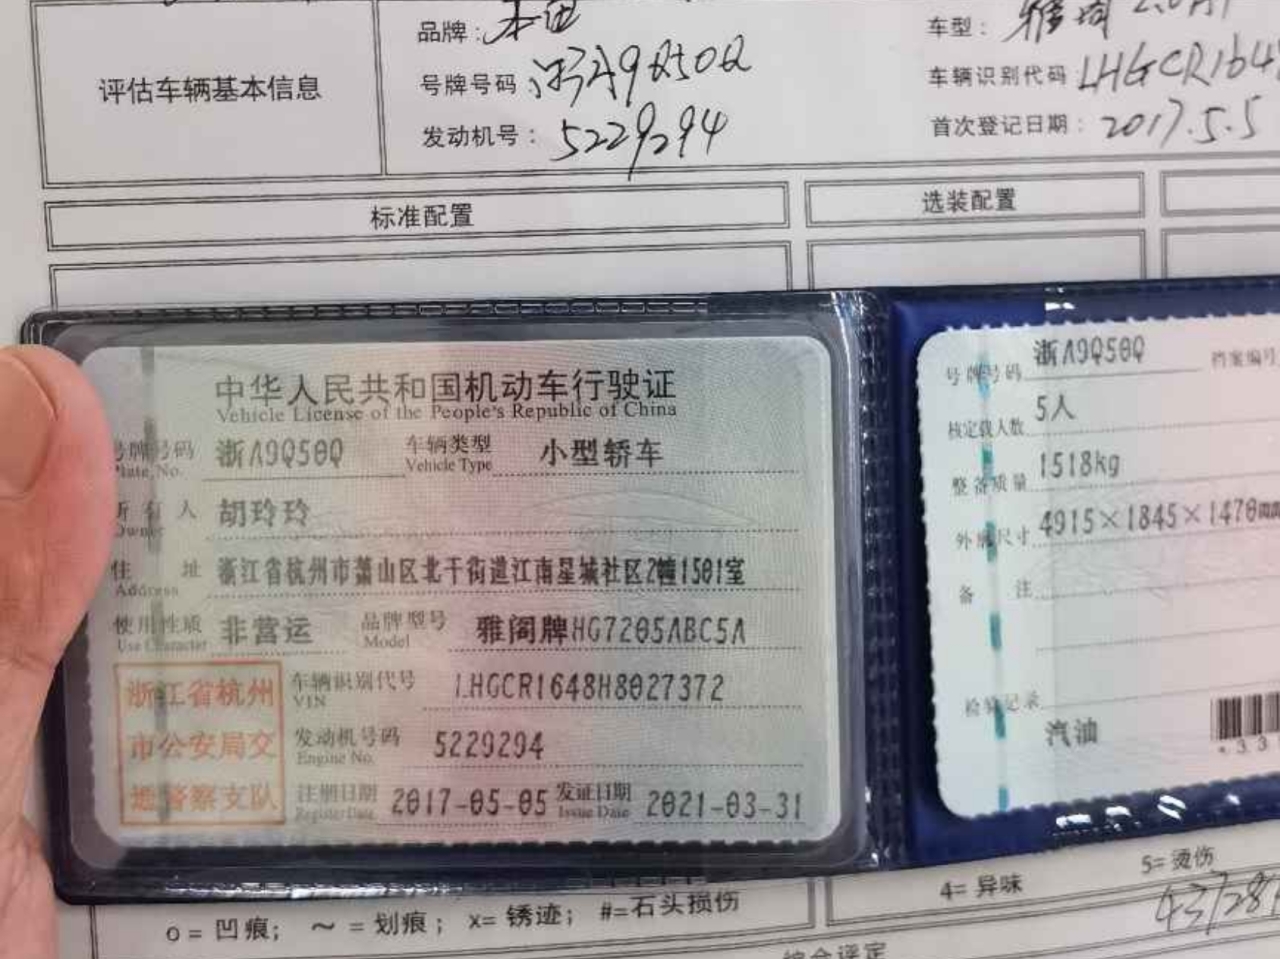 品牌：本田
车型：雅阁
评估车辆基本信息
号牌号码：浙A9Q50Q
车辆识别代码 LHGCR1648
发动机号：5229294
首次登记日期：2017.5.5
标准配置
选装配置
中华人民共和国机动车行驶证
Vehicle License of the People's Republic of China
号牌号码 浙A9Q50Q 车辆类型 小型轿车
Plate No. Vehicle Type
所有人 胡玲玲
Owner
住址 浙江省杭州市萧山区北干街道江南星城社区2幢1501室
Address
使用性质 非营运 品牌型号 雅阁牌HG7205ABC5A
Use Character Model
浙江省杭州
市公安局交
通警察支队
车辆识别代号 LHGCR1648H8027372
VIN
发动机号码 5229294
Engine No.
注册日期 2017-05-05 发证日期 2021-03-31
Register Date Issue Date
号牌号码 浙A9Q50Q 档案编号
核定载人数 5人
整备质量 1518kg
外廓尺寸 4915×1845×1470mm
备注
检验记录
汽油
*33
o = 凹痕; ～ = 划痕; x= 锈迹; #=石头损伤
4= 异味
5= 烫伤
综合评定